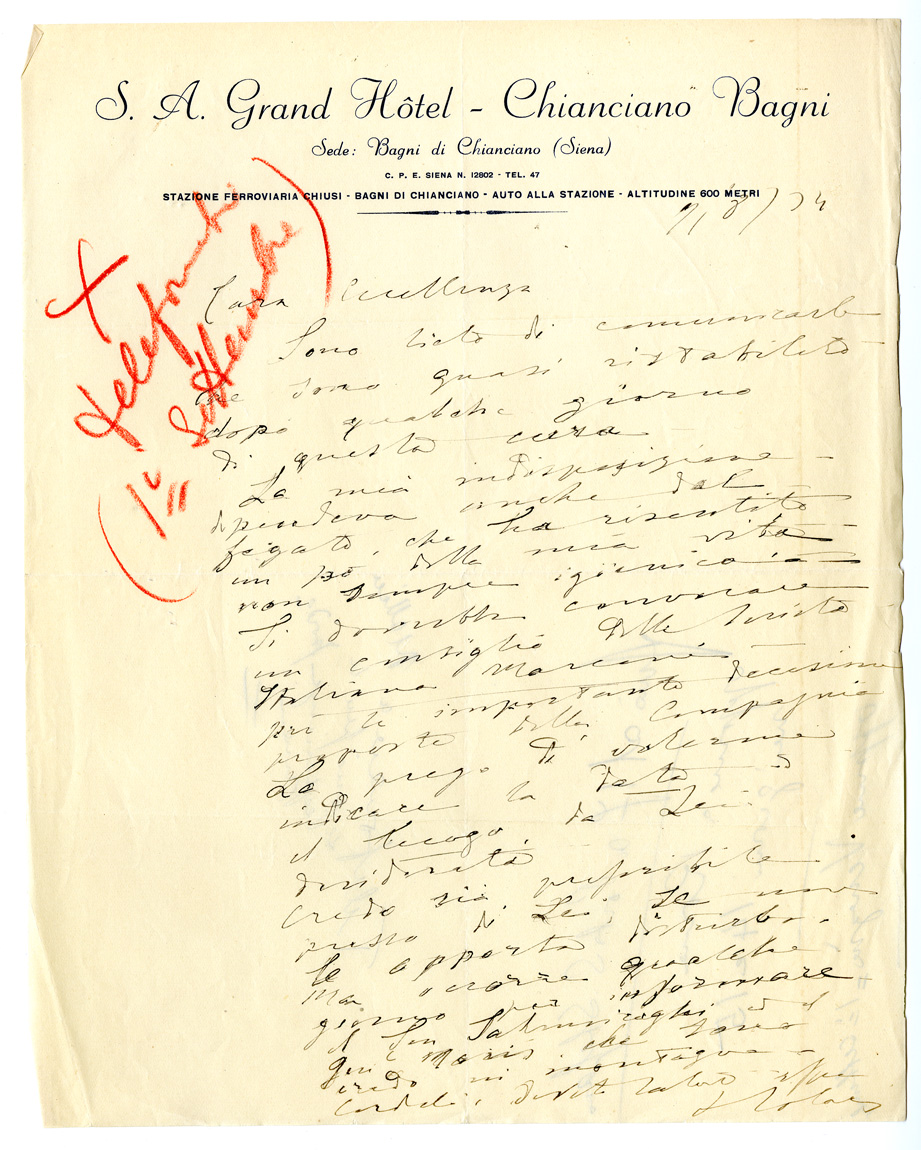 S. A. Grand Hôtel - Chianciano Bagni
Sede: Bagni di Chianciano (Siena)
C. P. E. SIENA N. 12802 - TEL. 47
STAZIONE FERROVIARIA CHIUSI - BAGNI DI CHIANCIANO - AUTO ALLA STAZIONE - ALTITUDINE 600 METRI
/8/34
+
(1° Settembre)
Cara Eccellenza
Sono lieto di comunicarle
che sono quasi ristabilito
dopo qualche giorno
di questa cura
La mia indisposizione
dipendeva anche dal
fegato, che ha risentito
un po della mia vita
non sempre igienica
Si dovrebbe convocare
un consiglio della Società
Italiana Marconi
per le importanti decisioni
proposte dalla Compagnia
La prego di volermi
indicare la data ed
il luogo da Lei
desiderati
Credo sia preferibile
presso di Lei, se non
le apporta disturbo.
Ma occorre qualche
giorno per informare
il Sen Salmoiraghi ed il
che sono
credo in montagna
Cordiali saluti